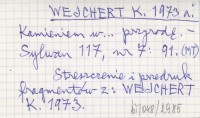 WEJCHERT K. 1973 n:
Kamieniem w... przyrodę, -
Sylwan 117, nr 7: 91. (MT)
Streszczenie i przedruk
fragmentów z: WEJCHERT
K. 1973.